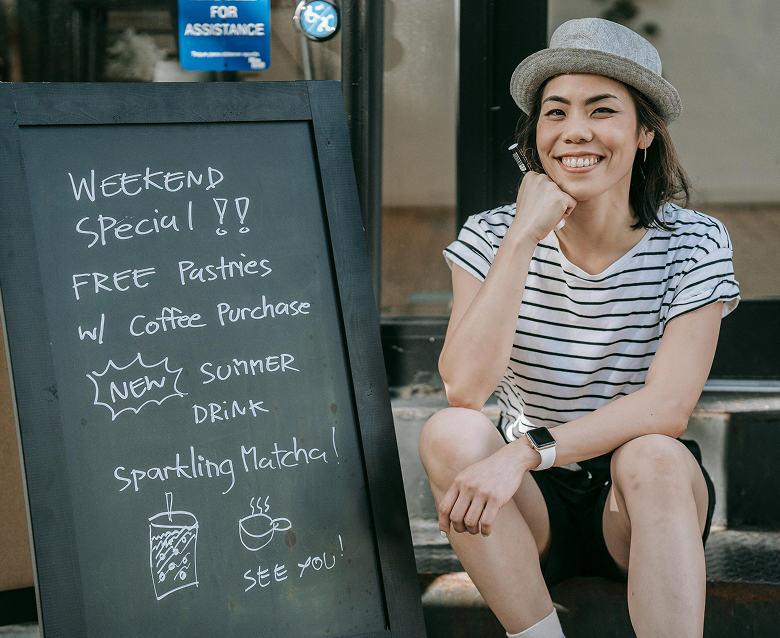 FOR
ASSISTANCE
WEEKEND
SPecial !!
FREE Pastries
w/ Coffee Purchase
NEW SUMMER
DRINK
Sparkling Matcha!
SEE YOU!